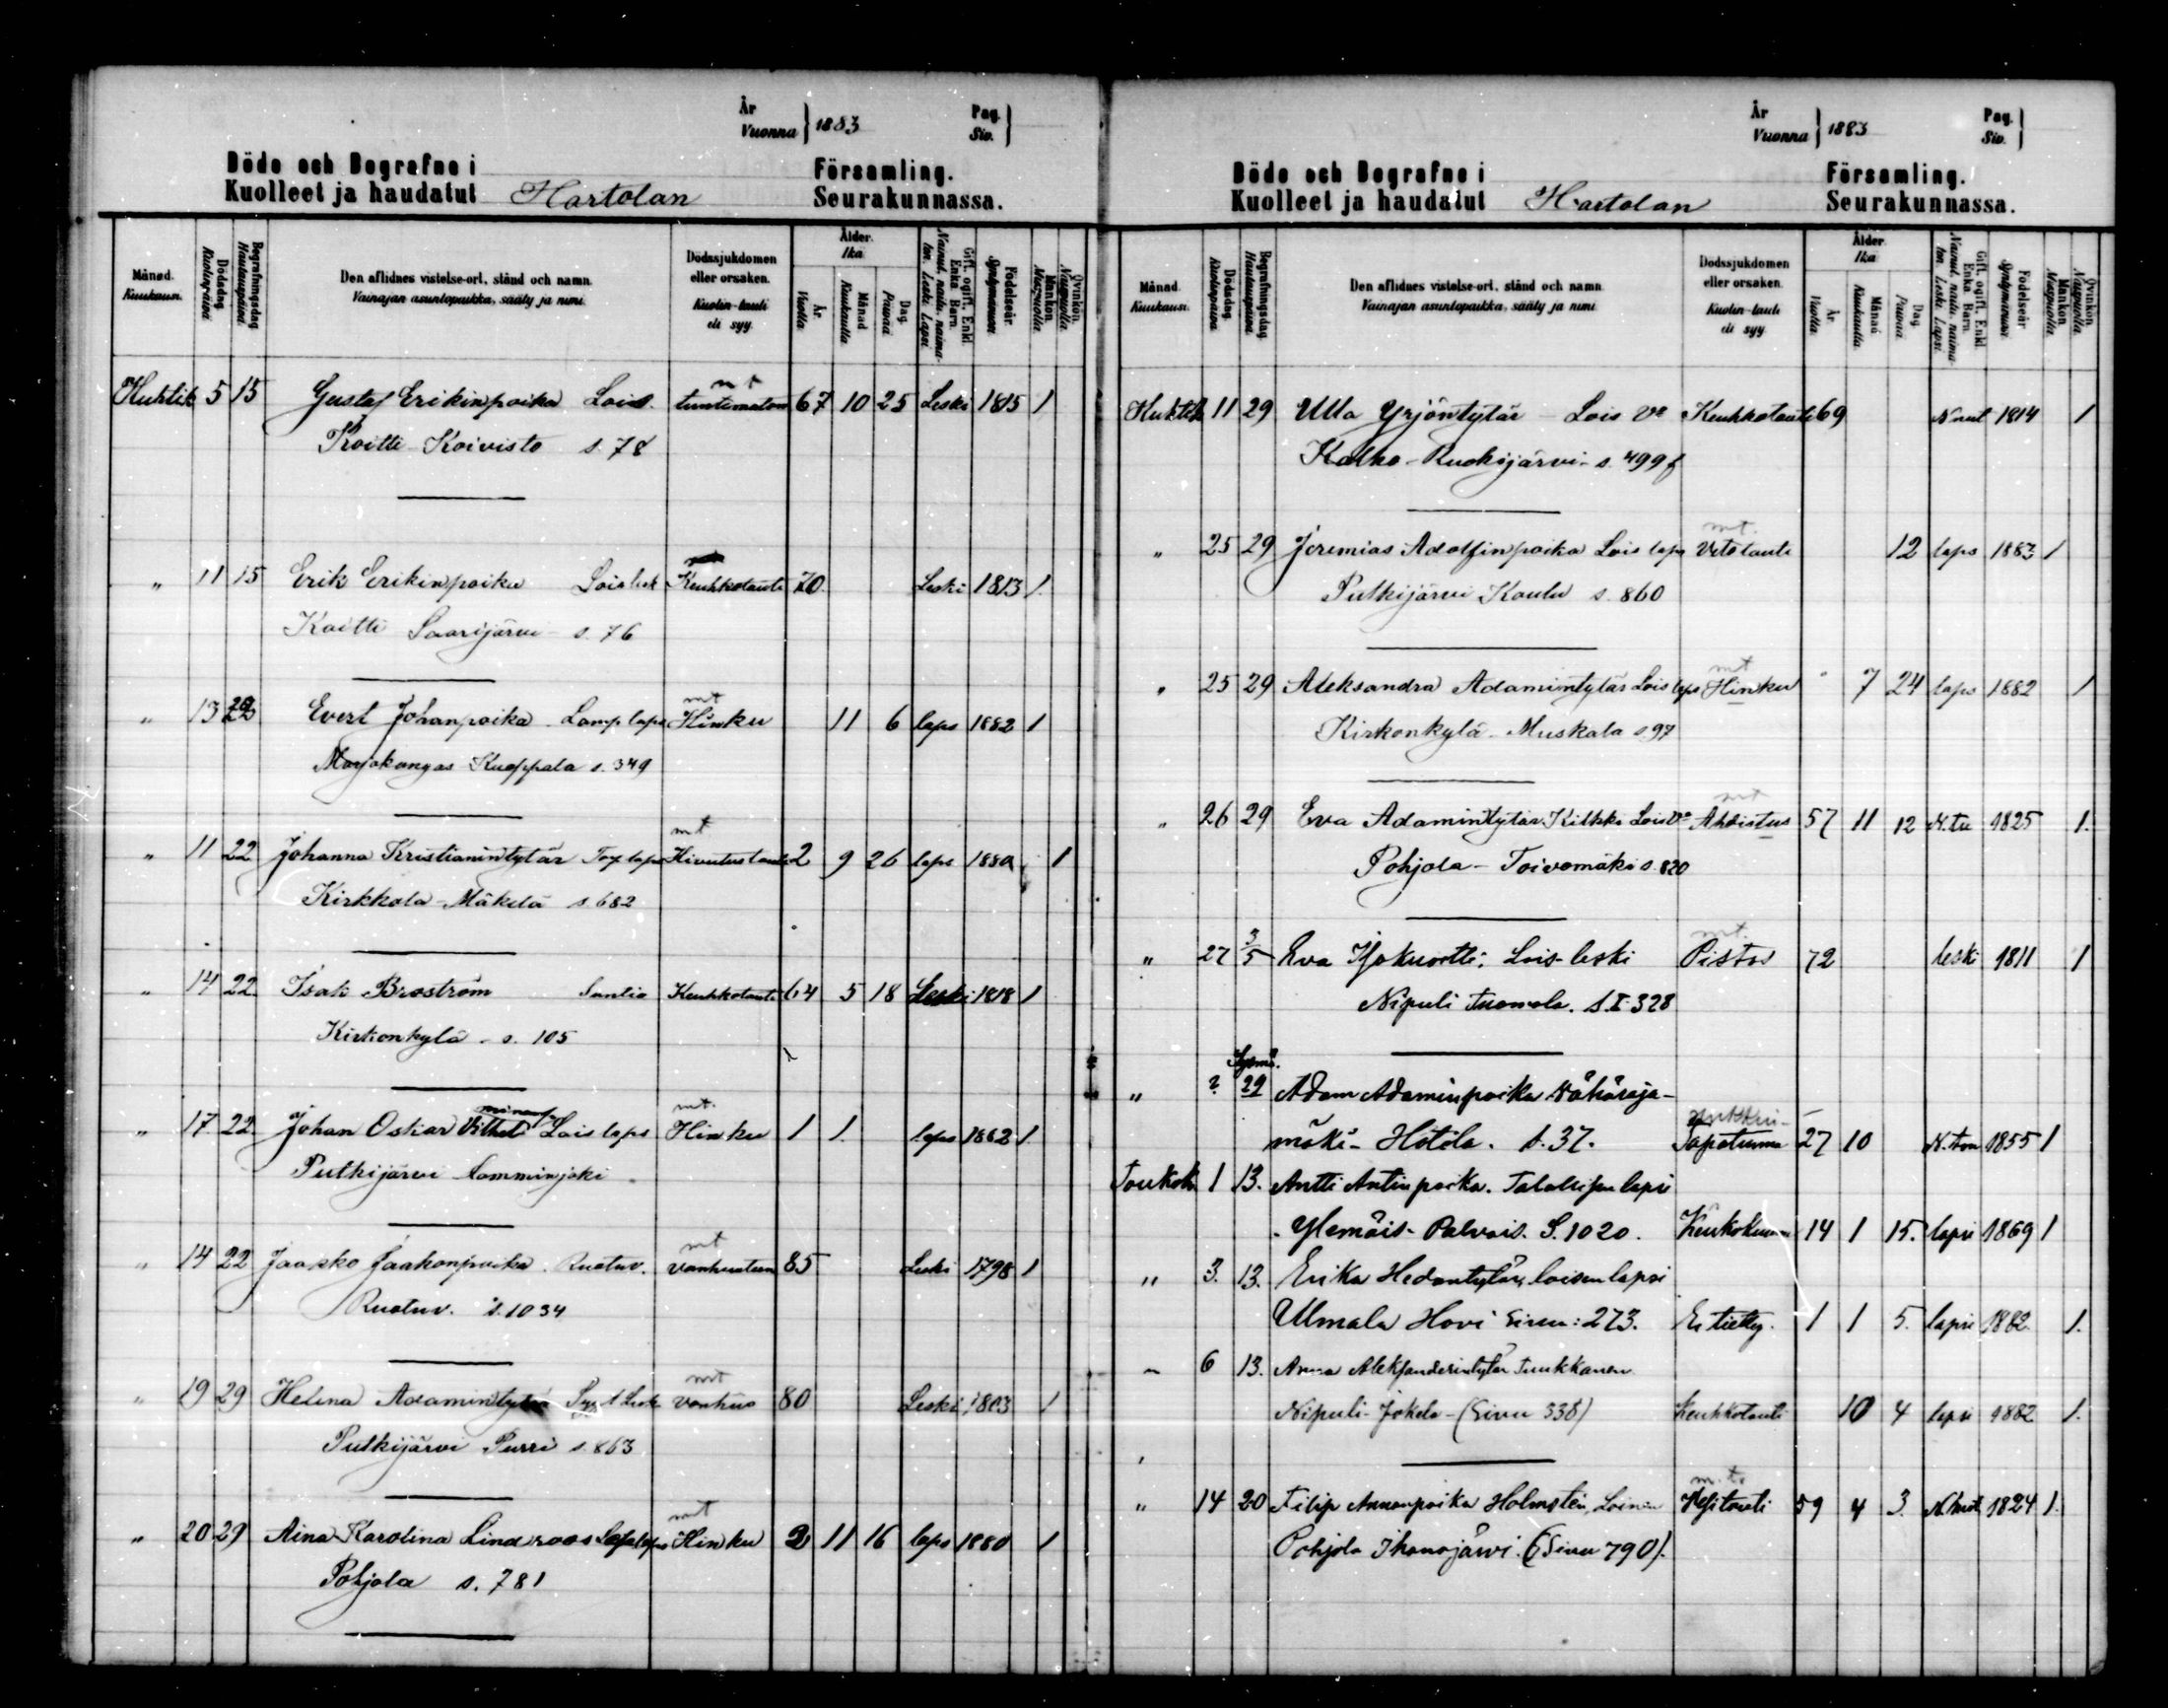 År
Vuonna } 1883
Pag.
Siv. }
Döde och Begrafne i
Kuolleet ja haudatut Hartolan
Församling.
Seurakunnassa.
Månad. Kuukaus. Dödsdag. Kuolinpäivä. Begrafningsdag Hautauspäivä. Den aflidnes vistelse-ort, stånd och namn. Vainajan asuntopaikka, sääty ja nimi. Dödssjukdomen eller orsaken. Kuolin-tauti eli syy. Ålder. Ikä. År. Vuotta. Månad. Kuukautta. Dag. Päivää. Gift, ogift, Enkl. Enka Barn. Nainut, naitu, naimaton, Leski Lapsi Födelseår. Syntymävuosi. Mankön. Miespuolta. Qvinkön. Naispuolta.
Huhtik 5 15 Gustaf Erikinpoika Lois. mt tuntematon 67 10 25 Leski 1815 1
Koitti Koivisto s. 78
" 11 15 Erik Erikinpoika Lois lesk Keuhkotauti 70 Leski 1813 1.
Koitti Saarijärvi s. 76
" 13 22 Evert Johanpoika Lamp laps mt Hinku 11 6 laps 1882 1
Marjokangas Kuoppala s. 349
" 11 22 Johanna Kristianintytär laps mt Kivutustauti 2 9 26 laps 1880 1
Kirkkola - Mäkelä s. 682
" 14 22 Isak Broström Suntio Keuhkotauti 64 5 18 Leski 1818 1
Kirkonkylä - s. 105
" 17 22 Johan Oskar Vilhel Lois laps mt. Hinku 1 1 laps 1882 1
Putkijärvi Lamminjoki
" 14 22 Jaakko Jaakonpoika Ruotuv. mt vanhuuteen 85 Leski 1798 1
Ruotuv. s. 1034
" 19 29 Helena Adamintytär Lesk mt vanhus 80 Leski 1803 1
Putkijärvi Purri s. 863
" 20 29 Aina Karolina Lindroos laps mt Hinku 2 11 16 laps 1880 1
Pohjola s. 781
År
Vuonna } 1883
Pag.
Siv. }
Döde och Begrafne i
Kuolleet ja haudatut Hartolan
Församling.
Seurakunnassa.
Månad. Kuukausi. Dödsdag. Kuolinpäivä. Begrafningsdag Hautauspäivä. Den aflidnes vistelse-ort, stånd och namn. Vainajan asuntopaikka, sääty ja nimi. Dödssjukdomen eller orsaken. Kuolin-tauti eli syy. Ålder. Ikä. År. Vuotta. Månad. Kuukautta. Dag. Päivää. Gift, ogift, Enkl. Enka Barn. Nainut, naitu, naimaton, Leski Lapsi. Födelseår Syntymävuosi. Mankön. Miespuolta. Qvinkön. Naispuolta.
Huhtik 11 29 Ulla Yrjöntytär Lois vo Keuhkotauti 69 N'nut 1814 1
Kalho - Ruokojärvi - s. 499
" 25 29 Jeremias Adolfinpoika Lois laps mt. Vetotauti 12 laps 1883 1
Putkijärvi Kaulu s. 860
" 25 29 Aleksandra Adamintytär Lois laps mt Hinku " 7 24 laps 1882 1
Kirkonkylä - Muskala s. 97
" 26 29 Eva Adamintytär Kilkki Lois vo mt Ahdistus 57 11 12 N.tu 1825 1.
Pohjola - Toivomäki s. 820
" 27 3/5 Eva Lois-leski mt. Pistos 72 leski 1811 1
Nipuli Tuomola. s. I. 328
Sysmä.
" ? 29 Adam Adaminpoika Vähäraja-
mäki - Hotila. s. 37. Tapaturma 27 10 N.ton 1855 1
Toukok 1 13. Antti Antinpoika. Talollisen lapsi
- Ylemäis - Palvais. S. 1020. 14 1 15. lapsi 1869 1
" 3. 13. Erika Hedantytär, loisen lapsi
Ulmala Hovi Sivu: 273. Ei tietty. 1 1 5. lapsi 1882 1.
" 6 13. Anna Aleksanderintytär Tuukkanen
Nipuli - Jokela - (Sivu 338) Keuhkotauti 10 4 lapsi 1882 1.
" 14 20 Filip Annanpoika Holmstein, Loinen m.t. Vesitauti 59 4 3. N.nut 1824 1.
Pohjola Ihanajärvi. (Sivu 790).